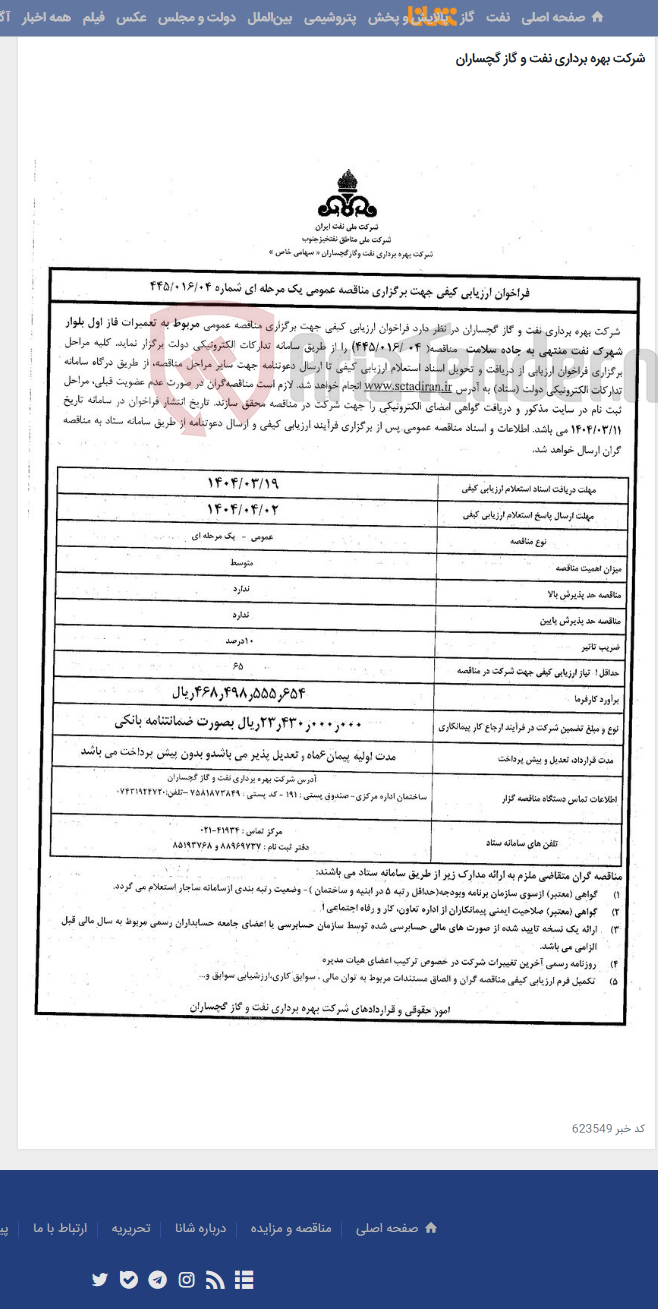 صفحه اصلی نفت گاز پالایش و پخش پتروشیمی بین‌الملل دولت و مجلس عکس فیلم همه اخبار
شرکت بهره برداری نفت و گاز گچساران
شرکت ملی نفت ایران
شرکت ملی مناطق نفتخیز جنوب
شرکت بهره برداری نفت وگاز گچساران « سهامی خاص »
فراخوان ارزیابی کیفی جهت برگزاری مناقصه عمومی یک مرحله ای شماره ۴۴۵/۰۱۶/۰۴
شرکت بهره برداری نفت و گاز گچساران در نظر دارد فراخوان ارزیابی کیفی جهت برگزاری مناقصه عمومی مربوط به تعمیرات فاز اول بلوار
شهرک نفت منتهی به جاده سلامت مناقصه( ۰۴ /۴۴۵/۰۱۶) را از طریق سامانه تدارکات الکترونیکی دولت برگزار نماید. کلیه مراحل
برگزاری فراخوان ارزیابی از دریافت و تحویل اسناد استعلام ارزیابی کیفی تا ارسال دعوتنامه جهت سایر مراحل مناقصه، از طریق درگاه سامانه
تدارکات الکترونیکی دولت (ستاد) به آدرس www.setadiran.ir انجام خواهد شد. لازم است مناقصه‌گران در صورت عدم عضویت قبلی، مراحل
ثبت نام در سایت مذکور و دریافت گواهی امضای الکترونیکی را جهت شرکت در مناقصه محقق سازند. تاریخ انتشار فراخوان در سامانه تاریخ
۱۴۰۴/۰۳/۱۱ می باشد. اطلاعات و اسناد مناقصه عمومی پس از برگزاری فرآیند ارزیابی کیفی و ارسال دعوتنامه از طریق سامانه ستاد به مناقصه
گران ارسال خواهد شد.
مهلت دریافت اسناد استعلام ارزیابی کیفی ۱۴۰۴/۰۳/۱۹
مهلت ارسال پاسخ استعلام ارزیابی کیفی ۱۴۰۴/۰۴/۰۲
نوع مناقصه عمومی - یک مرحله ای
میزان اهمیت مناقصه متوسط
مناقصه حد پذیرش بالا ندارد
مناقصه حد پذیرش پایین ندارد
ضریب تاثیر ۱۰درصد
حداقل ا تیاز ارزیابی کیفی جهت شرکت در مناقصه ۶۵
برآورد کارفرما ۴۶۸٫۴۹۸٫۵۵۵٫۶۵۴ریال
نوع و مبلغ تضمین شرکت در فرآیند ارجاع کار پیمانکاری ۲۳٫۴۳۰٫۰۰۰٫۰۰۰ریال بصورت ضمانتنامه بانکی
مدت قرارداد، تعدیل و پیش پرداخت مدت اولیه پیمان۶ماه , تعدیل پذیر می باشدو بدون پیش پرداخت می باشد
آدرس شرکت بهره برداری نفت و گاز گچساران
اطلاعات تماس دستگاه مناقصه گزار ساختمان اداره مرکزی- صندوق پستی : ۱۹۱ - کد پستی : ۷۵۸۱۸۷۳۸۴۹ -تلفن:۰۷۴۳۱۹۲۴۷۲۰
تلفن های سامانه ستاد مرکز تماس : ۴۱۹۳۴-۰۲۱
دفتر ثبت نام : ۸۸۹۶۹۷۳۷ و ۸۵۱۹۳۷۶۸
مناقصه گران متقاضی ملزم به ارائه مدارک زیر از طریق سامانه ستاد می باشند:
۱) گواهی (معتبر) ازسوی سازمان برنامه وبودجه(حداقل رتبه ۵ در ابنیه و ساختمان ) - وضعیت رتبه بندی ازسامانه ساجار استعلام می گردد.
۲) گواهی (معتبر) صلاحیت ایمنی پیمانکاران از اداره تعاون، کار و رفاه اجتماعی !
۳) ارائه یک نسخه تایید شده از صورت های مالی حسابرسی شده توسط سازمان حسابرسی یا اعضای جامعه حسابداران رسمی مربوط به سال مالی قبل
الزامی می باشد.
۴) روزنامه رسمی آخرین تغییرات شرکت در خصوص ترکیب اعضای هیات مدیره
۵) تکمیل فرم ارزیابی کیفی مناقصه گران و الصاق مستندات مربوط به توان مالی ، سوابق کاری،ارزشیابی سوابق و...
امور حقوقی و قراردادهای شرکت بهره برداری نفت و گاز گچساران
کد خبر 623549
صفحه اصلی مناقصه و مزایده درباره شانا تحریریه ارتباط با ما